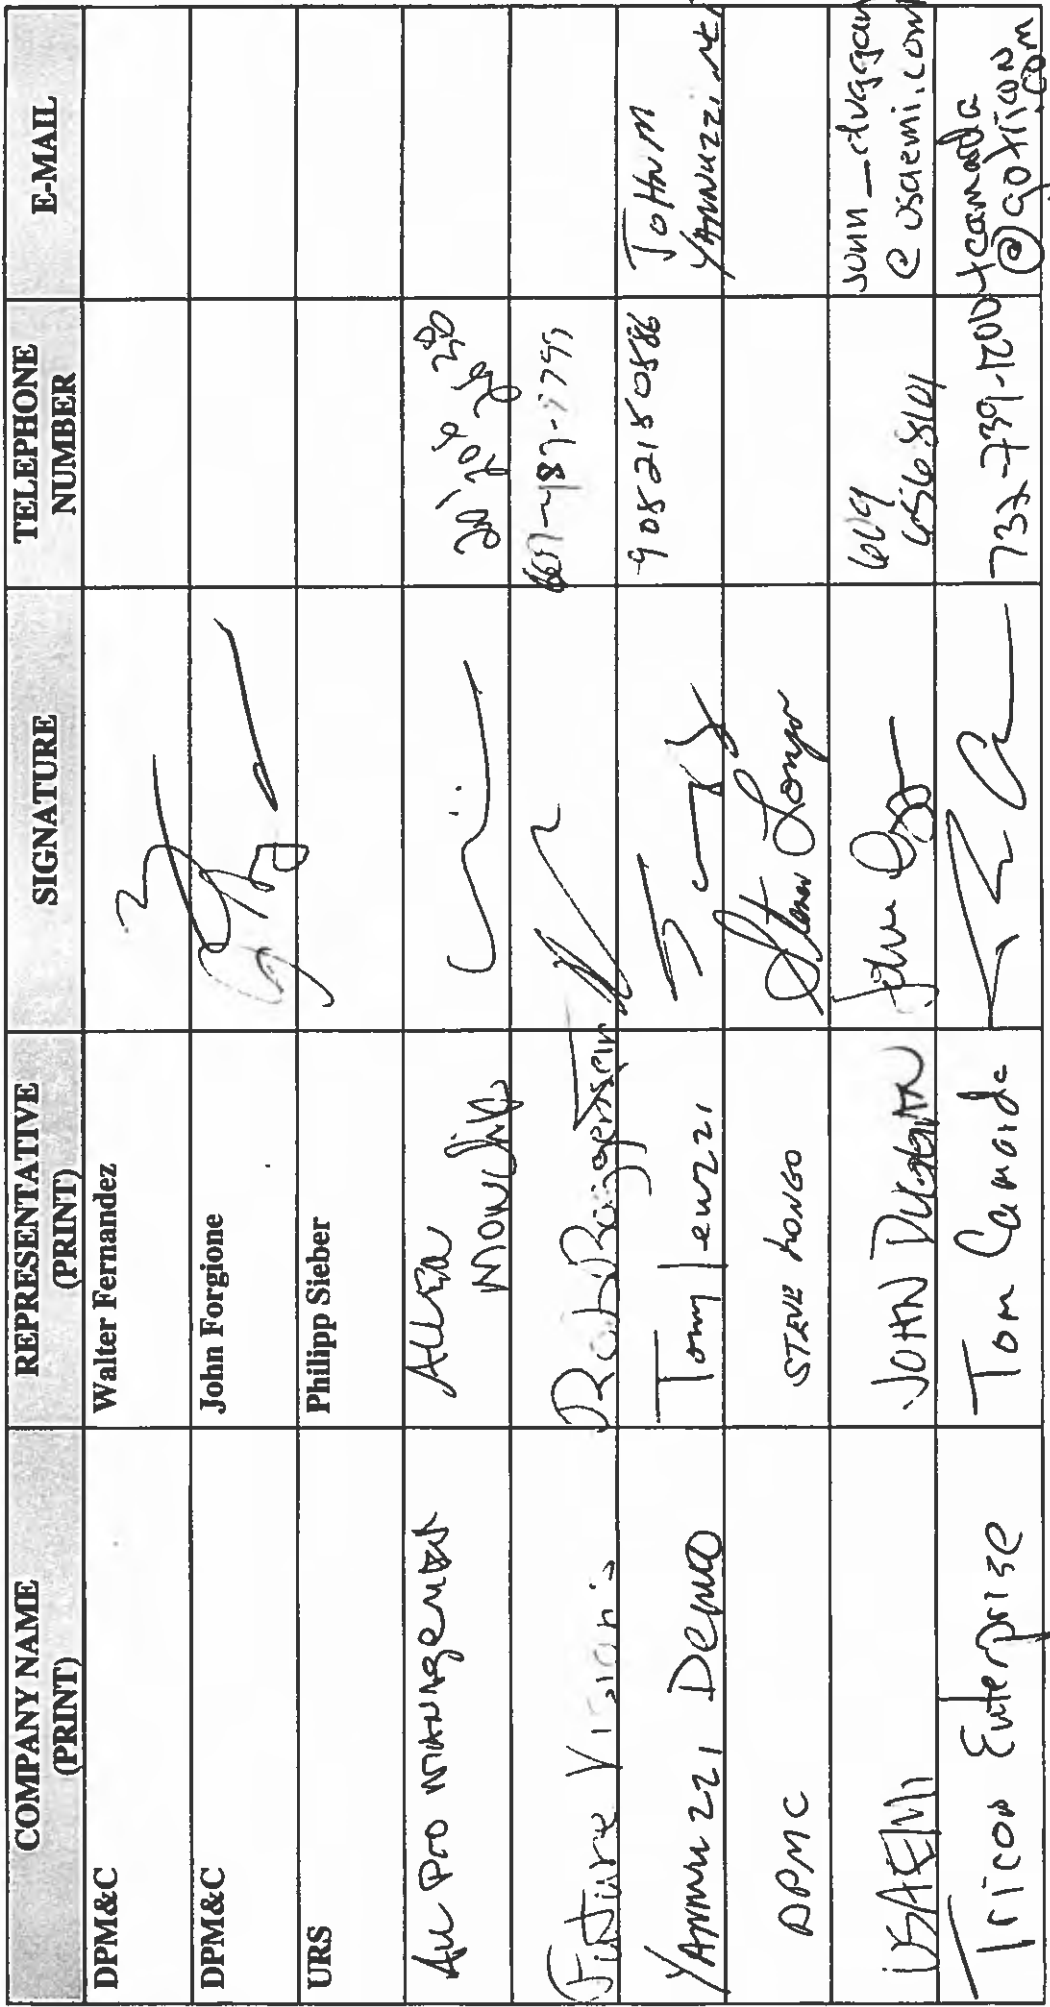 COMPANY NAME
(PRINT)
REPRESENTATIVE
(PRINT)
SIGNATURE
TELEPHONE
NUMBER
E-MAIL
DPM&C
Walter Fernandez
DPM&C
John Forgione
URS
Philipp Sieber
All Pro Management
Allen
Future Visions
Rob
Yannuzzi Demo
Tony Ienzzi
9082180886
John M
Yannuzzi.net
DPMC
STEVE LONGO
Steven Longo
USAEMI
JOHN DUGGAN
John
609
656 8101
john_duggan
@usaemi.com
Tricon Enterprise
Tom Camarda
732-739-1200
tcamarda
@gotricon
.com